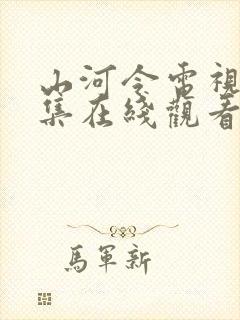 山河令電視
集在綫觀看
馬軍新